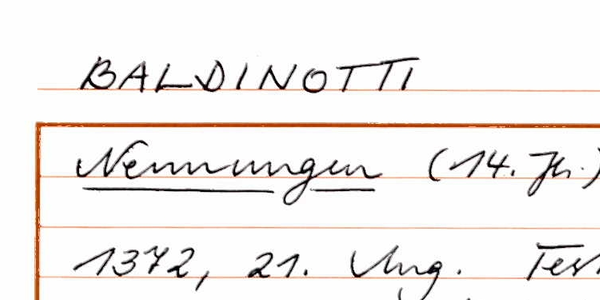 BALDINOTTI
Nennungen (14. Jh.)
1372, 21. Aug. Test